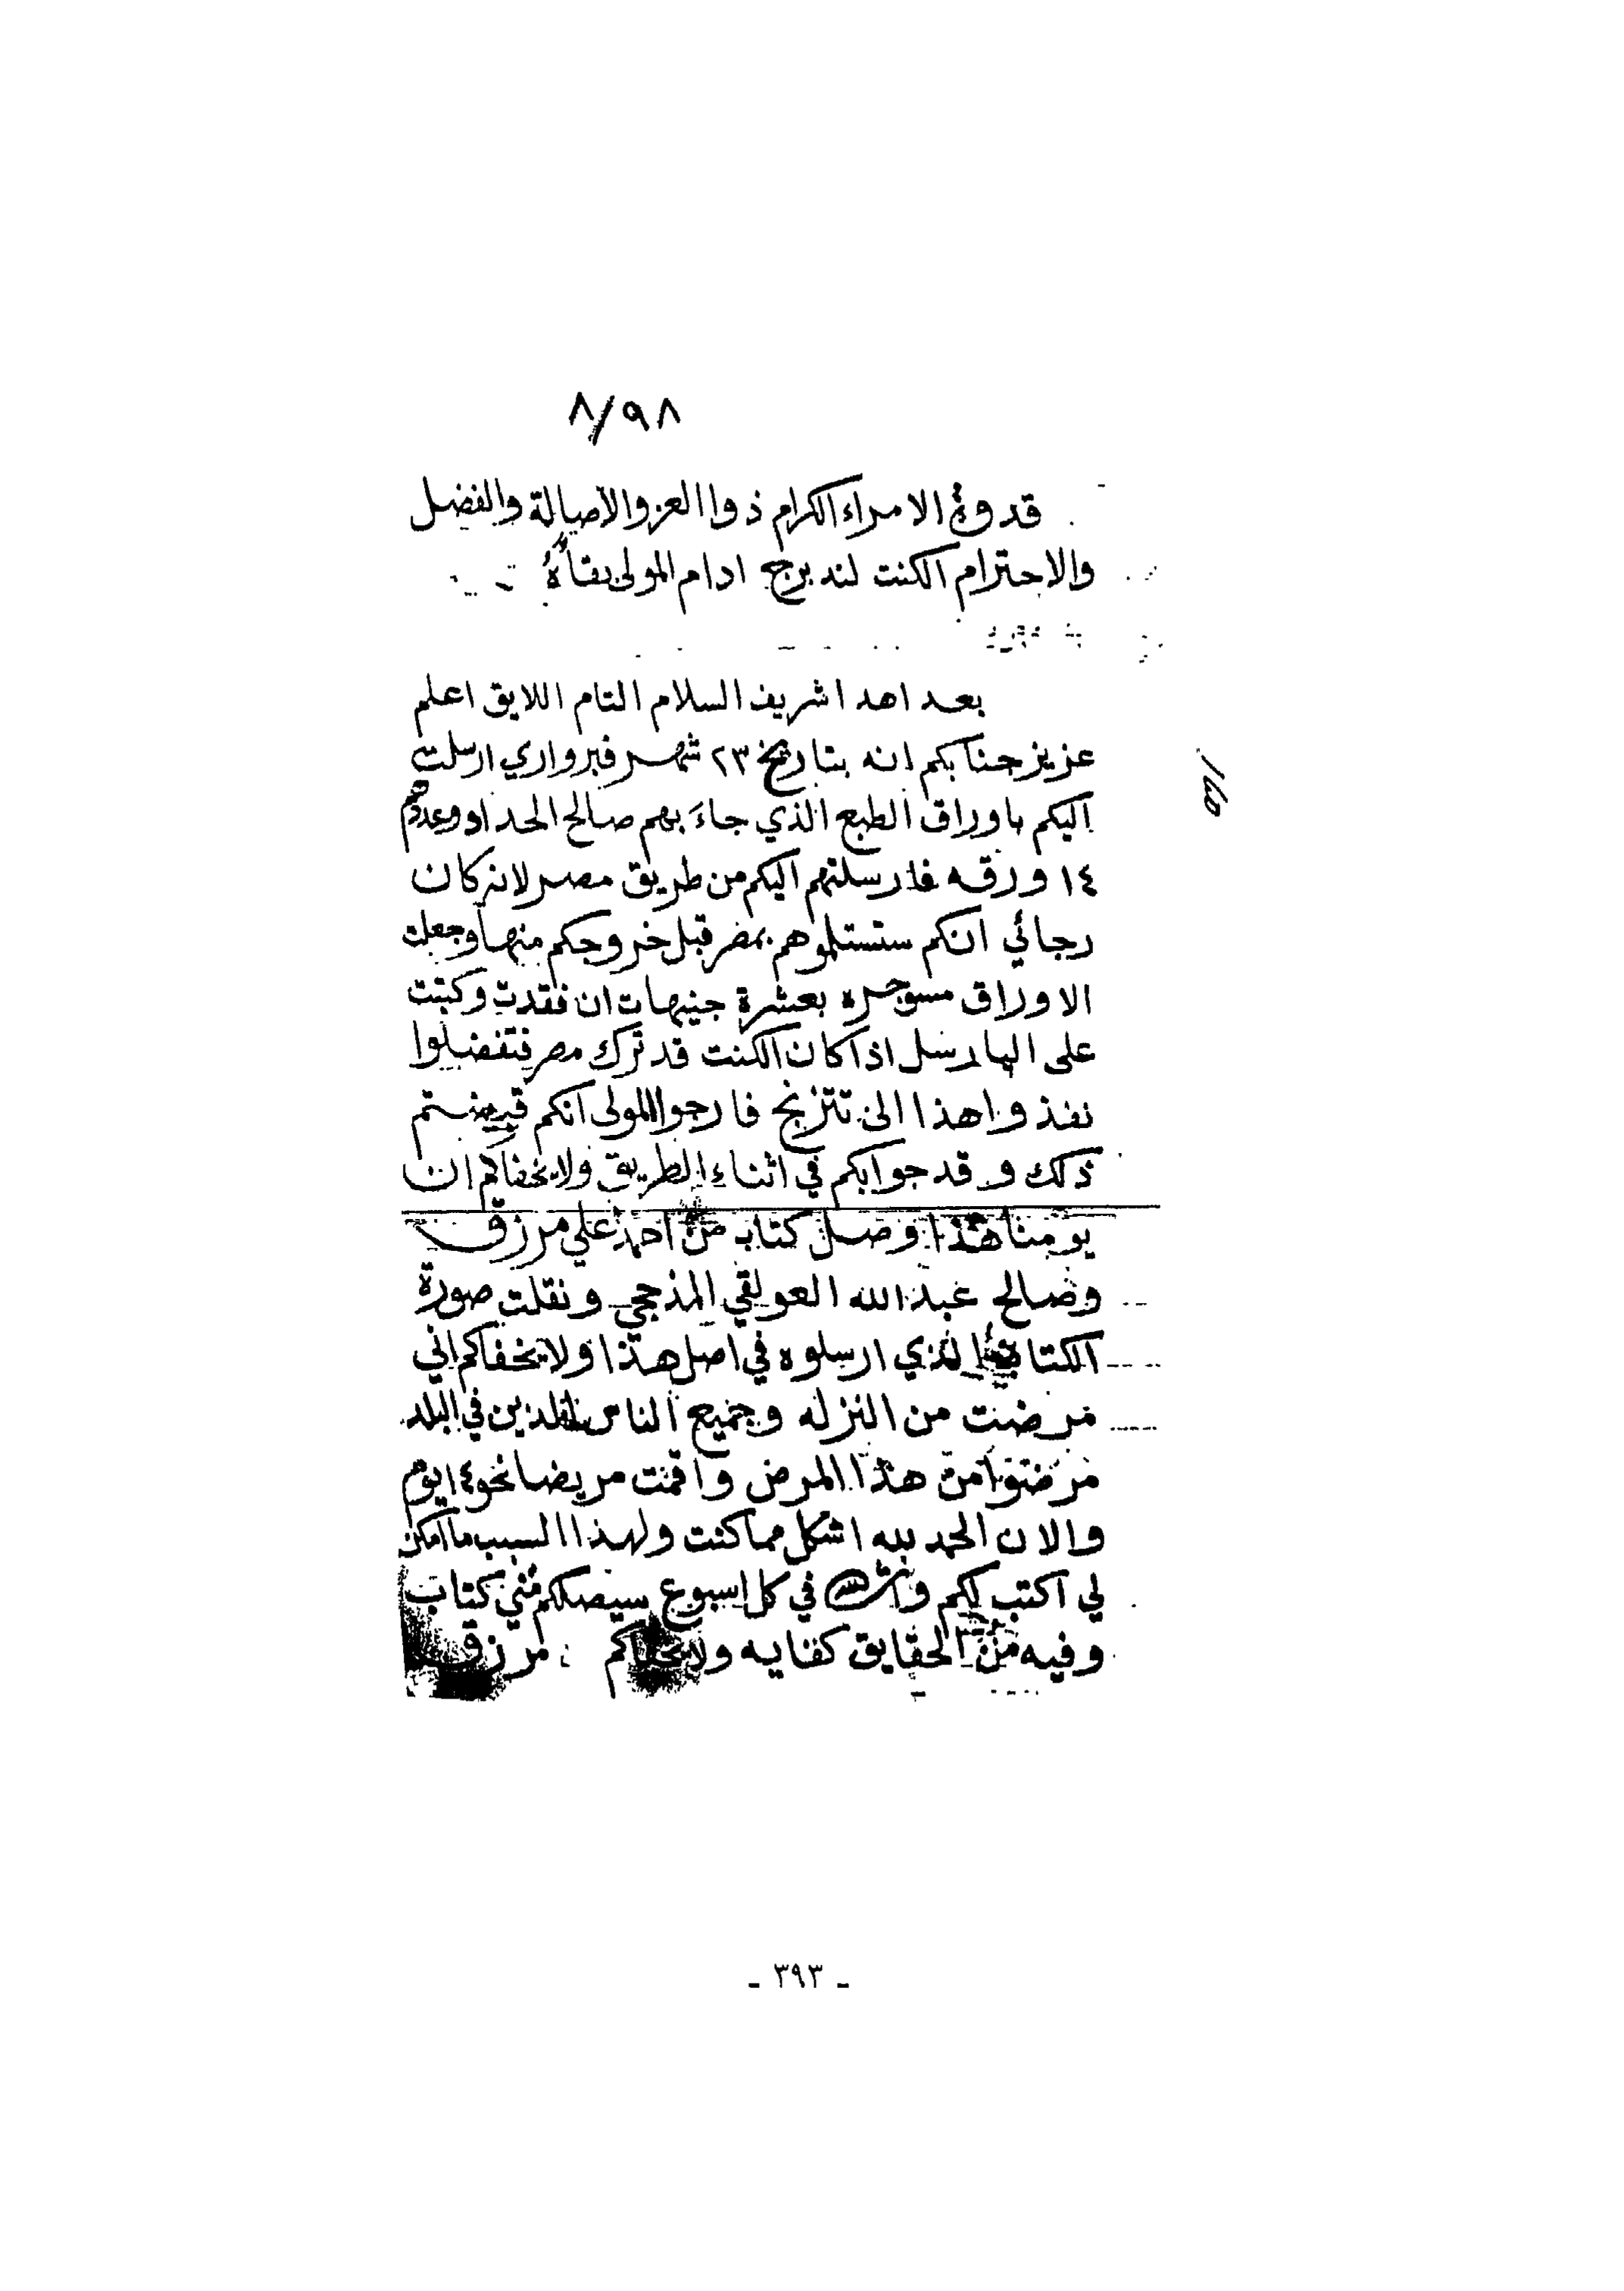 ٨/٩٨
قدوة الامراء الكرام ذوا العز والاصالة والفضل
والاحترام الكنت لندبرج ادام المولى بقاؤه
بعد اهدا شريف السلام التام اللايق اعلم
عزيز جنابكم انه بتاريخ ٢٣ شهر فبرواري ارسلت
اليكم باوراق الطبع الذي جاء بهم صالح الحداد وعددهم
١٤ ورقه فارسلتهم اليكم من طريق مصر لانه كان
رجائي انكم ستستلموهم بمصر قبل خروجكم منها وجعلت
الاوراق مسوجره بعشرة جنيهات ان فقدت وكتبت
على البارسل اذا كان الكنت قد ترك مصر فتفضلوا
نفذوا هذا الى تتزنج فارجوا المولى انكم قبضتم
ذلك وقد جوابكم في اثناء الطريق ولا يخفاكم ان
يومنا هذا وصل كتاب من احمد علي مرزق
وصالح عبدالله العولقي المذحجي ونقلت صورة
الكتاب الذي ارسلوه في اصل هذا ولا يخفاكم اني
مرضت من النزله وجميع الناس الذين في البلد
مرضوا من هذا المرض واقمت مريضا نحو ١٤ يوم
والان الحمد لله اشكل مما كنت ولهذا السبب ما امكن
لي اكتب لكم وانشاالله في كل اسبوع سيصلكم مني كتاب
وفيه من الحقايق كفايه ولا يخفاكم مرزق
- ٣٩٣ -